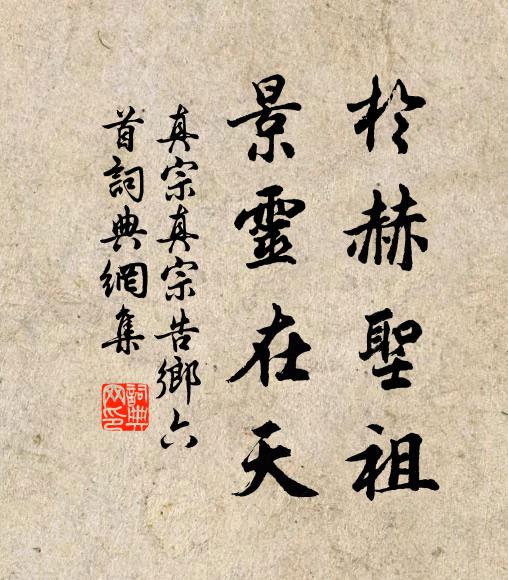 於赫聖祖
景靈在天
真宗真宗告鄉六
首詞典網集
詞典网印